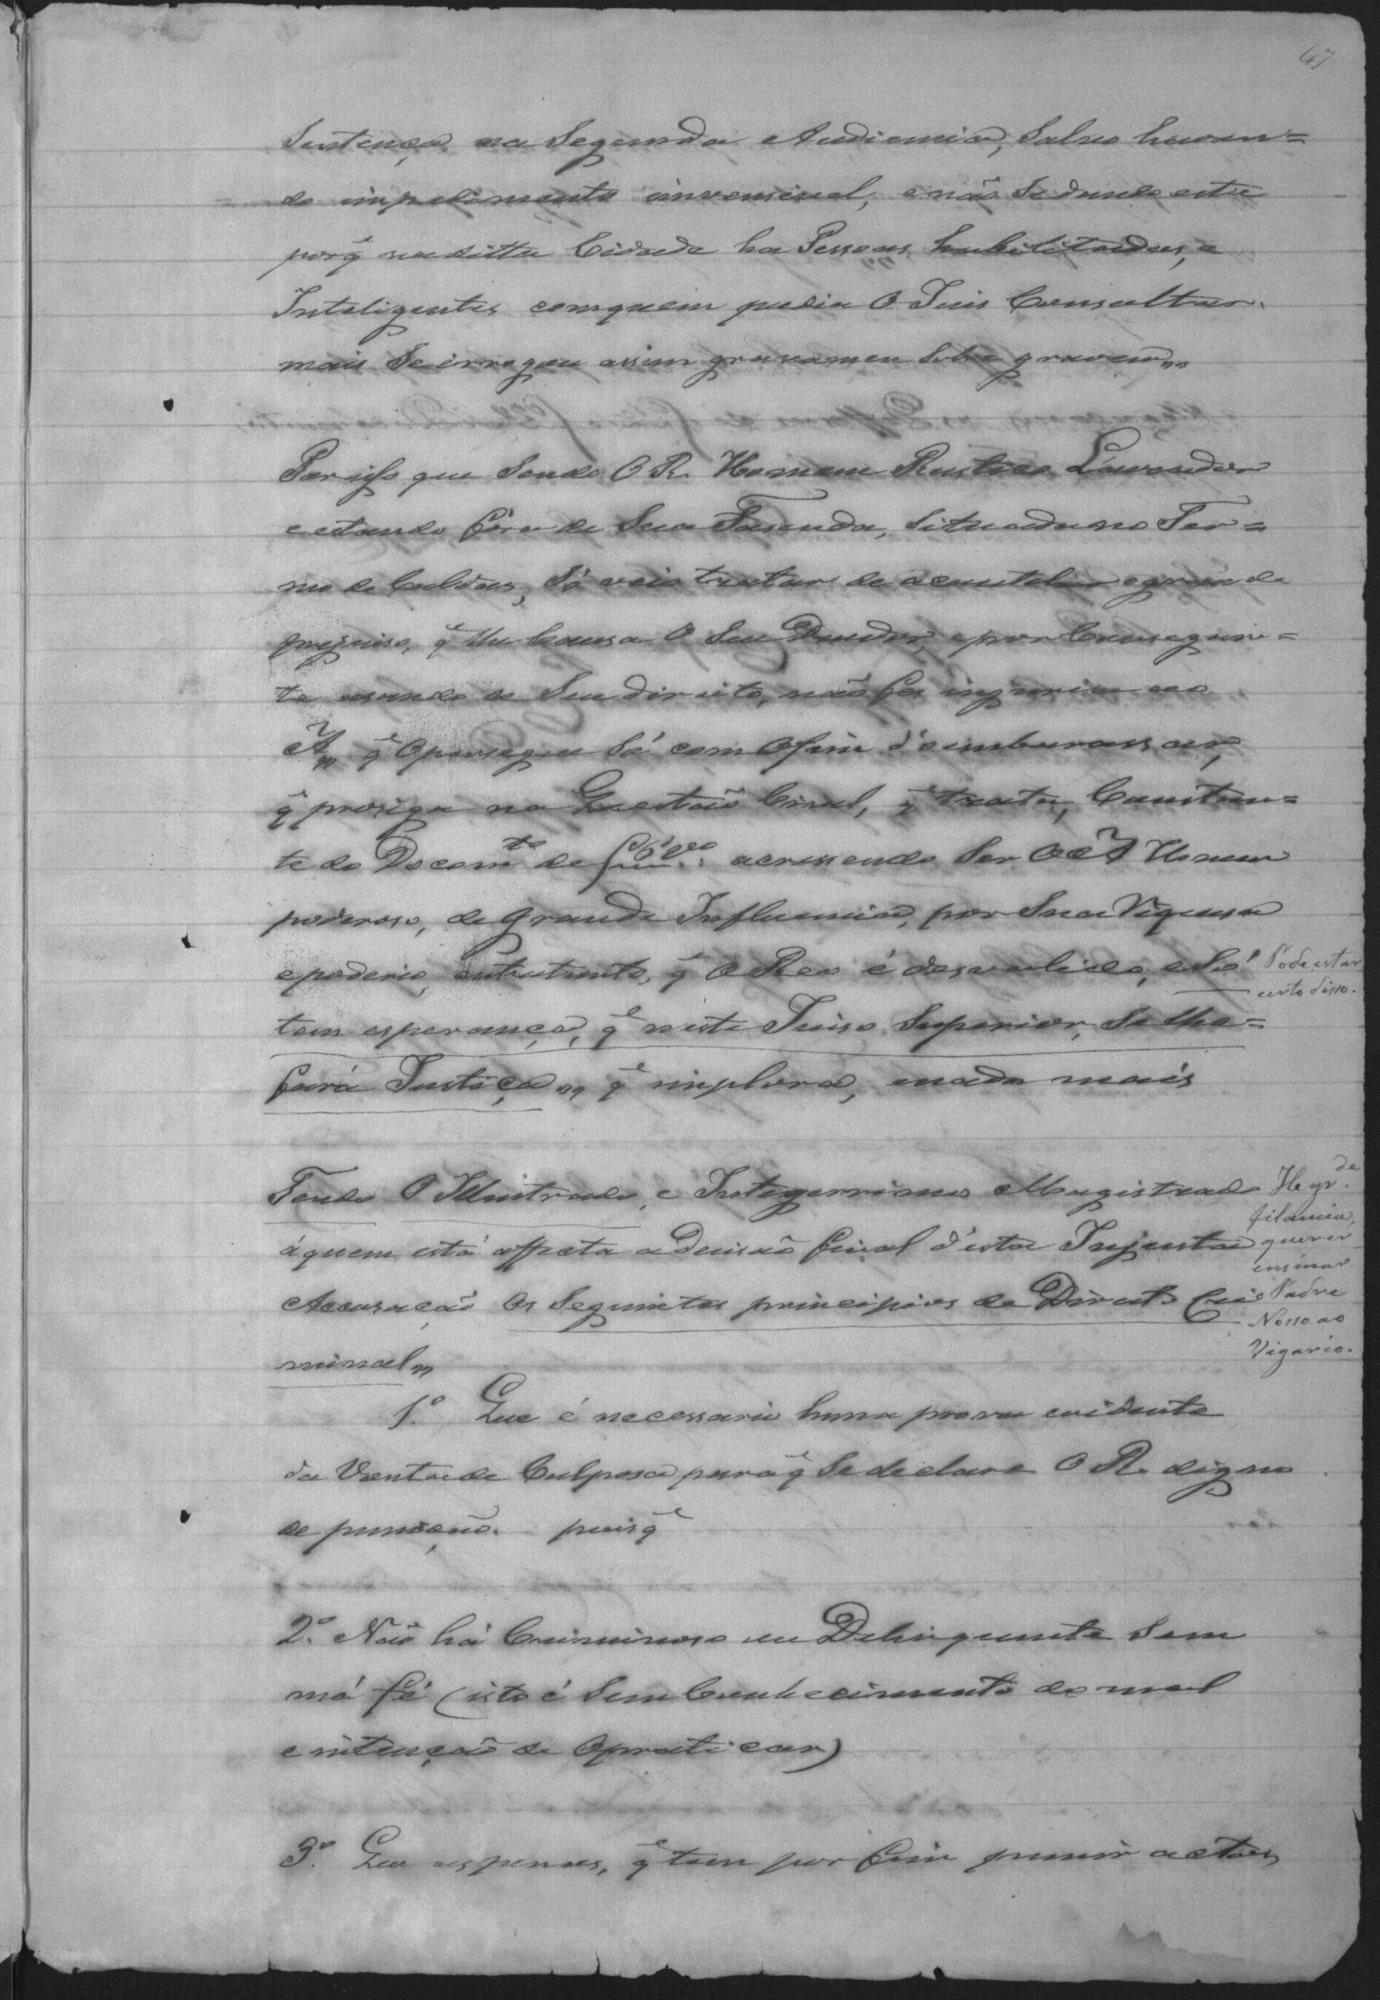 47
Sentença, na Segunda Audiencia, Salvo haven=
do impedimento invensivel, e não Se dando este
porq̃ na ditta Cidade ha Pessoas habilitadas, e
Inteligentes com quem podia O Juis Consultar.
mais Se irrogou assim gravamen Sobre gravem,,
Por isso que Sendo O R. Homem Rustico Lavrador
e estando fóra de Sua Fasenda, Situada no Ter=
mo de Caldas, Só veio tratar de acautelar o grande
prejuiso, q̃ lhe Causa O Seu Devedor, e por Conseguin=
te usando de Seu direito, não fes injuria ao
A,, q̃ O persegue Só com O fim d'embarassar,
q̃ prosiga na Questão Civel, q̃ trata, Constan=
te do Docom.to de f. 6 vo acressendo Ser O A Homem
poderoso, de grande Influencia, por Sua Riquesa
e poderio, entretanto, q̃ O Reo é desvalido, e Só
Pode estar
certo disso.
tem esperança, q̃ n'este Juiso Superior, Se lhe=
fará Justiça,, q̃ implora, e nada mais
Tendo O Illustrado, e Integerrimo Magistrado
á quem está affecta a Decisão final d'esta Injusta
Accusação Os Seguintes principios de Direito Cri
minal,,
He gr.de
filaucia,
querer
ensinar
o Padre
Nosso ao
Vigario.
1.º Que é necessario huma prova evidente
da Vontade Culposa para q̃ Se declare O R. digno
de punição. pois q̃
2.º Não há Criminoso ou Delinquente Sem
má fé (isto é Sem Conhecimento do mal
e intenção de O praticar)
3.º Que as penas, q̃ tem por fim punir actos,